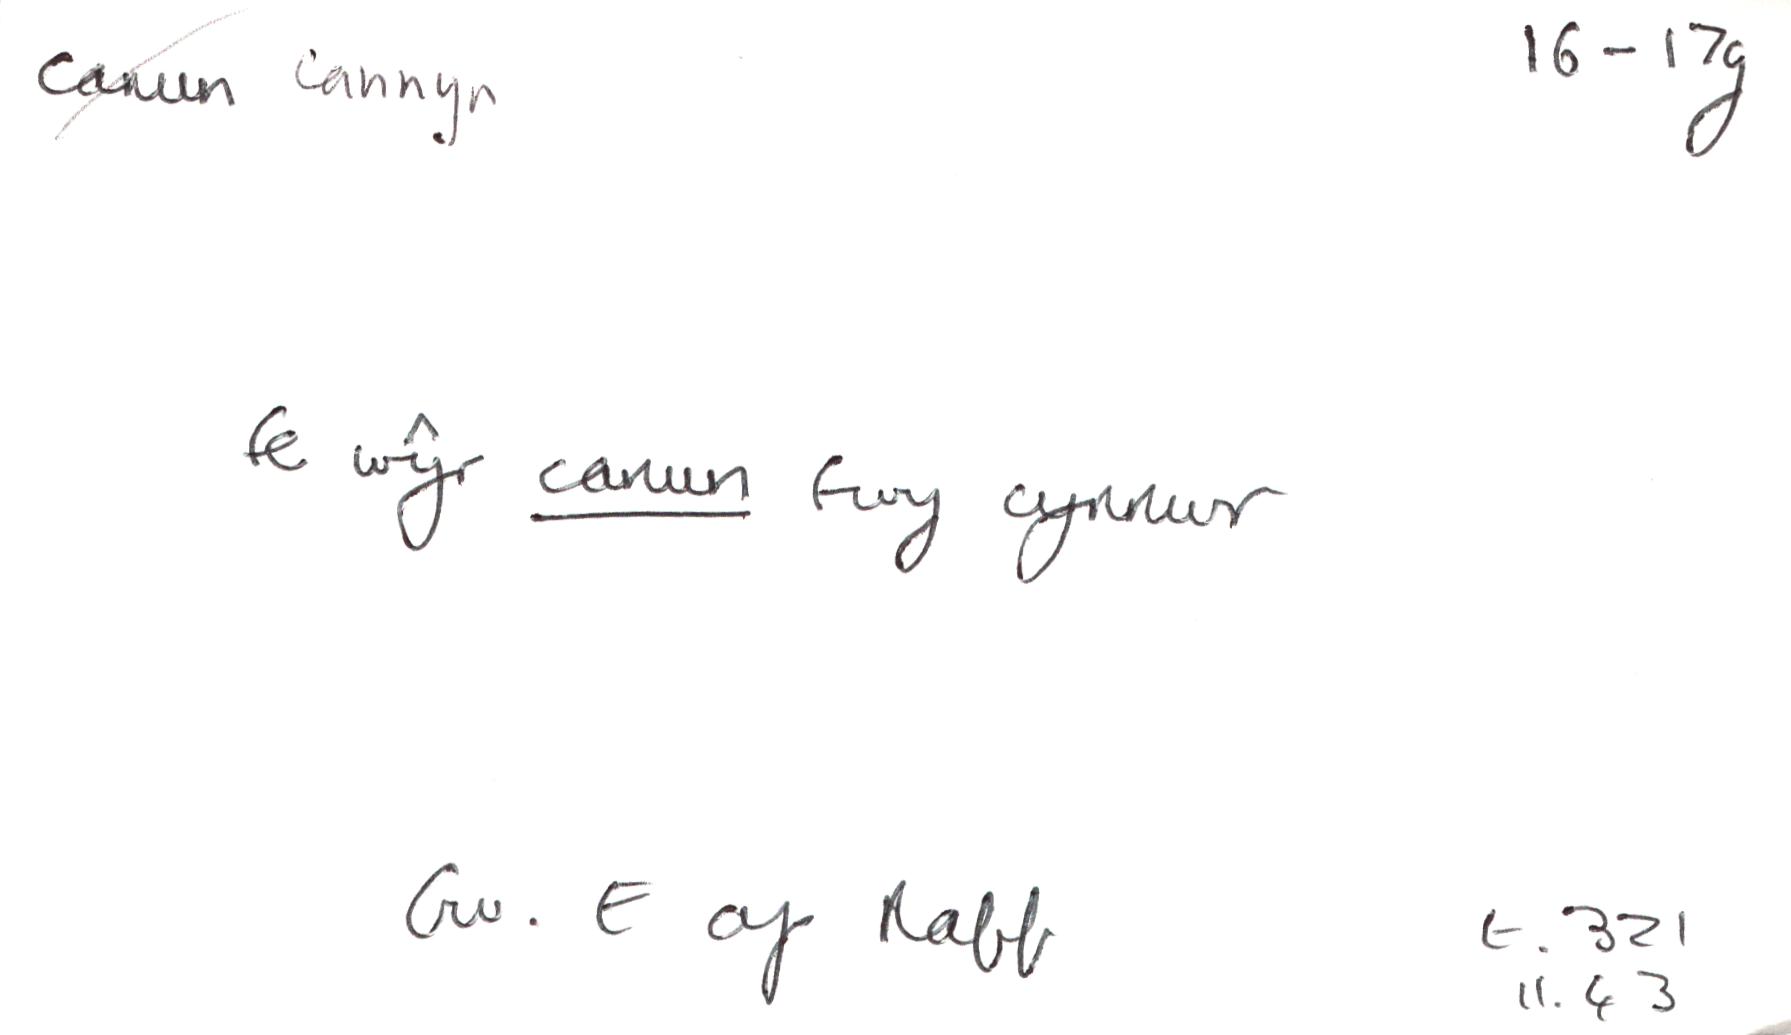 canun cannyn 16-17g
fe wŷr canun fwy cynnwr
Gw. E ap Raff
t. 321
ll. 43